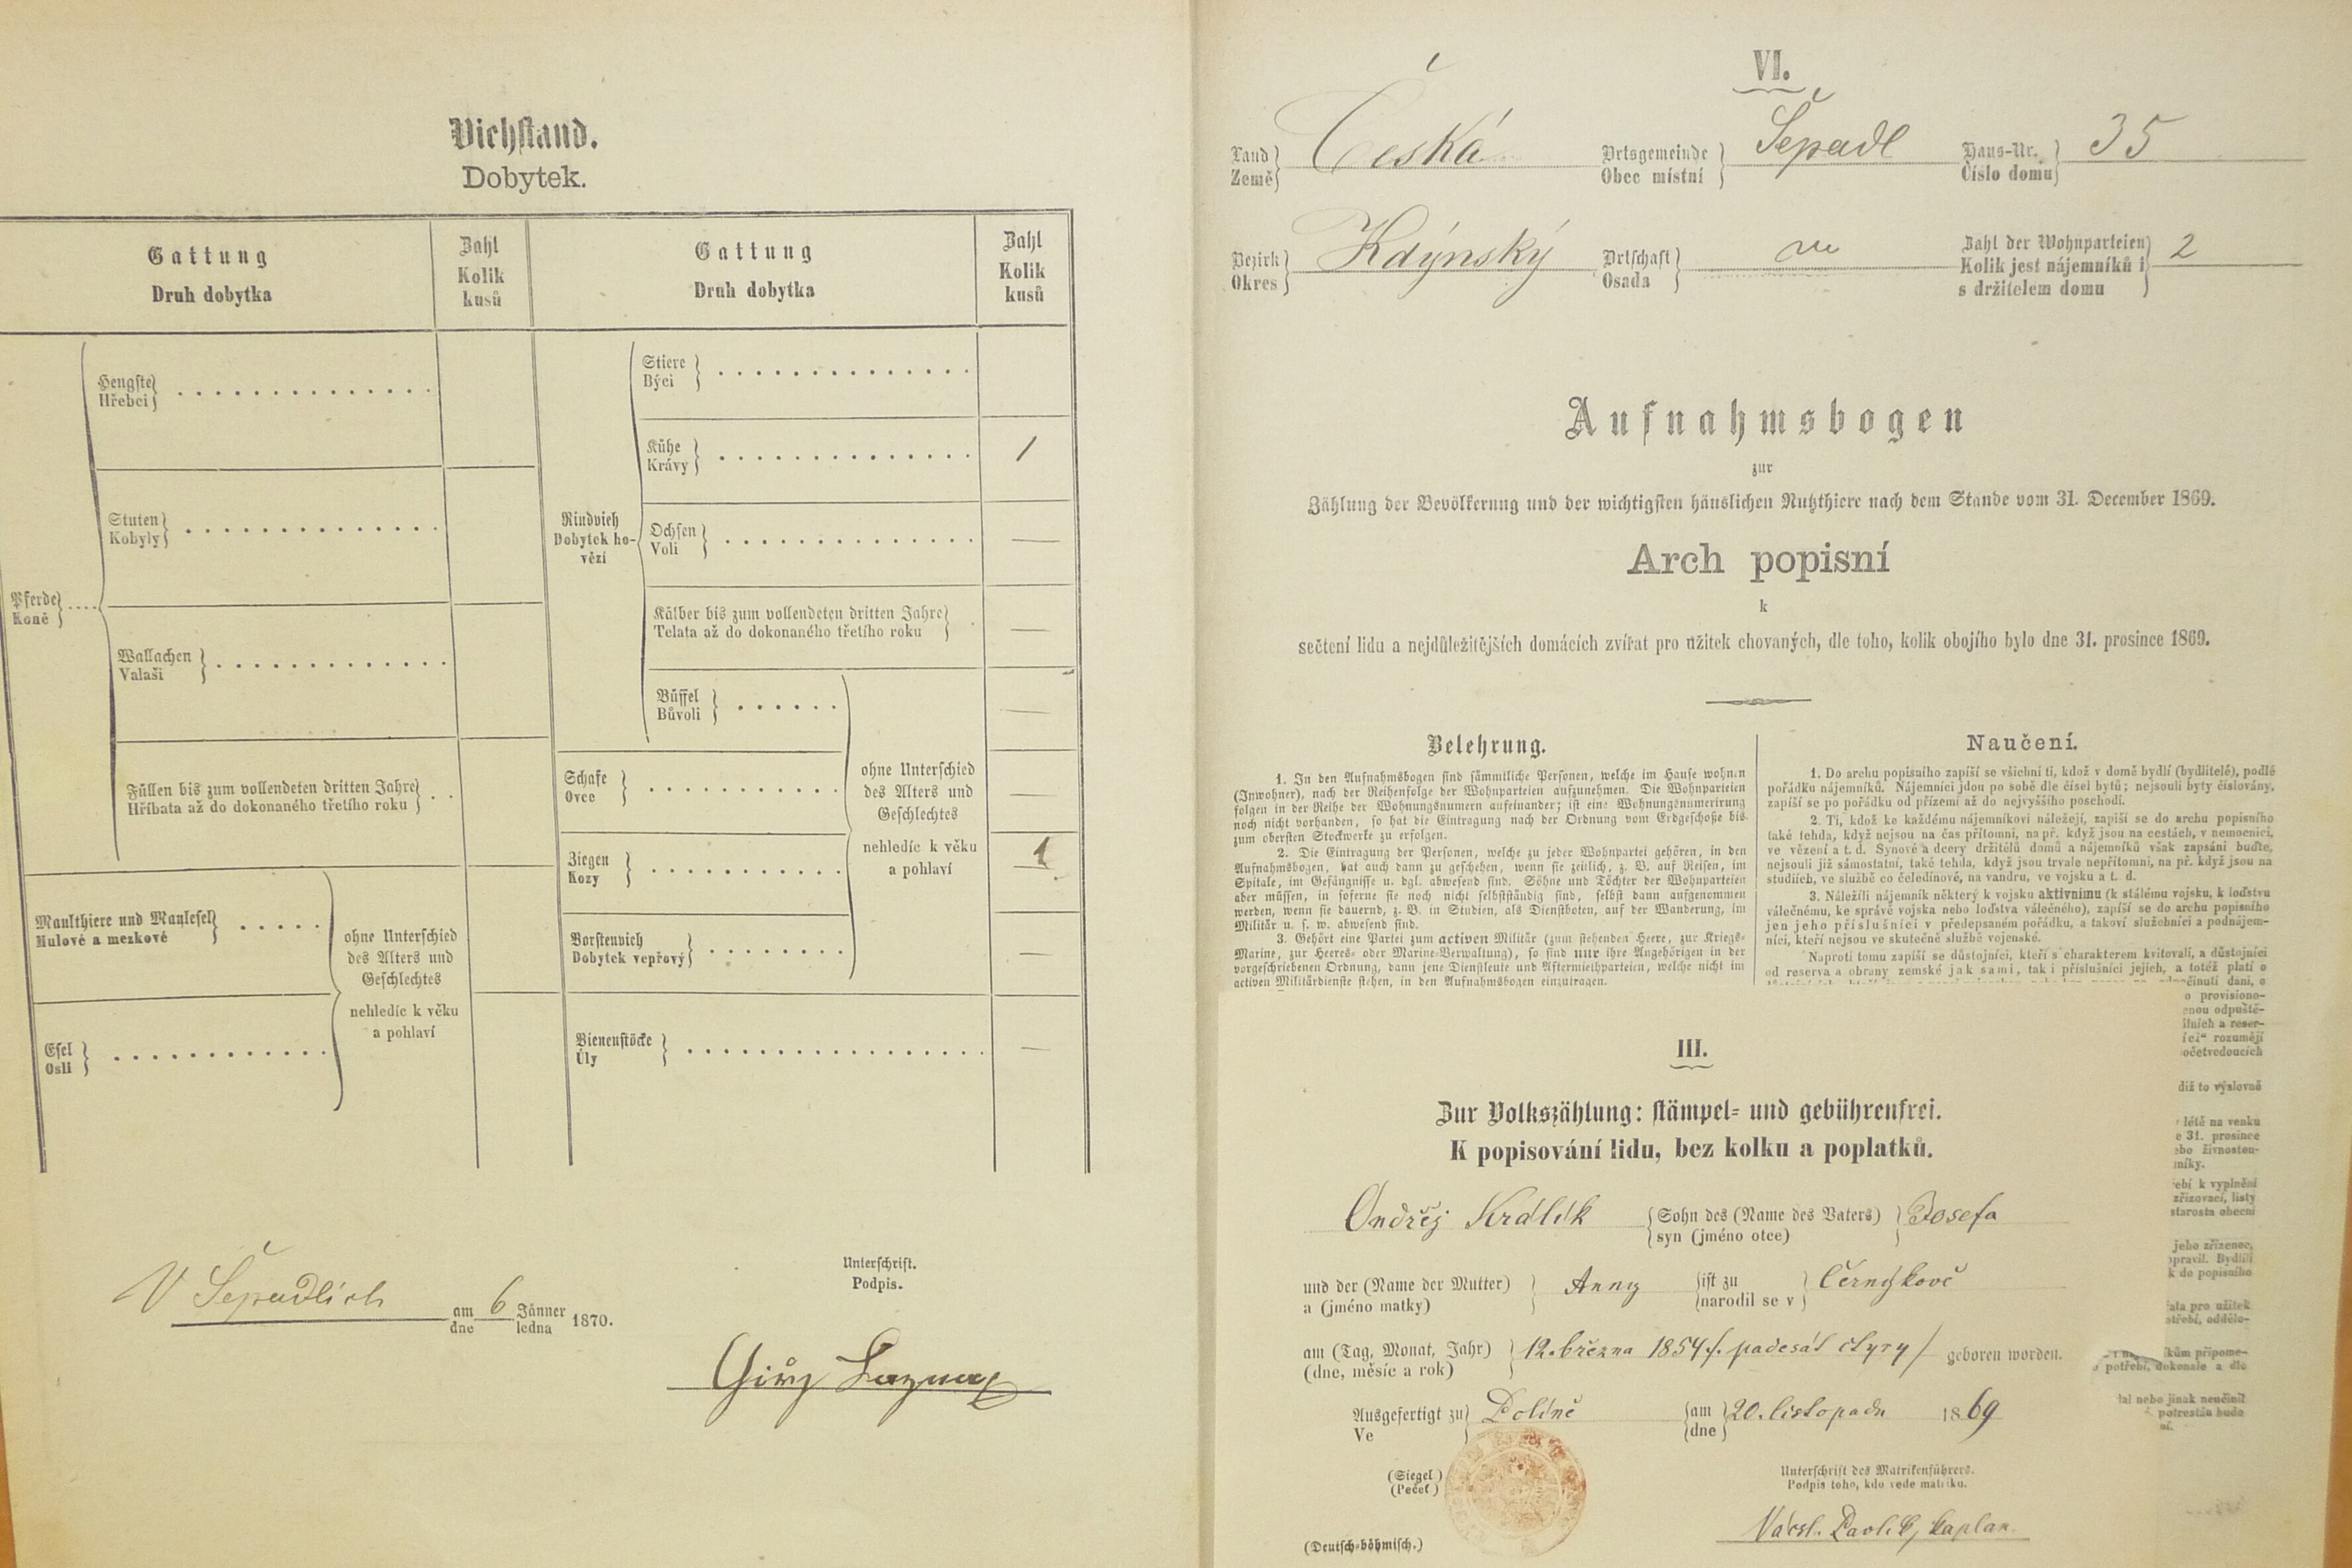 Viehstand.
Dobytek.
Gattung
Druh dobytka
Zahl
Kolik
kusů
Gattung
Druh dobytka
Zahl
Kolik
kusů
Pferde
Koně
Hengste
Hřebci
Stuten
Kobyly
Wallachen
Valaši
Füllen bis zum vollendeten dritten Jahre
Hříbata až do dokonaného třetího roku
Maulthiere und Maulesel
Mulové a mezkové
Esel
Osli
ohne Unterschied
des Alters und
Geschlechtes
nehledíc k věku
a pohlaví
Rindvieh
Dobytek ho-
vězí
Stiere
Býci
Kühe
Krávy
1
Ochsen
Voli
—
Kälber bis zum vollendeten dritten Jahre
Telata až do dokonaného třetího roku
—
Büffel
Bůvoli
—
Schafe
Ovce
—
Ziegen
Kozy
1
Borstenvieh
Dobytek vepřový
—
ohne Unterschied
des Alters und
Geschlechtes
nehledíc k věku
a pohlaví
Bienenstöcke
Úly
—
V Šepadlích am 6 Jänner 1870.
dne ledna
Unterschrift.
Podpis.
VI.
Land Česká Ortsgemeinde Šepadl Haus-Nr. 35
Země Obec místní Číslo domu
Bezirk Kdýnský Ortschaft Zahl der Wohnparteien 2
Okres Osada Kolik jest nájemníků i
s držitelem domu
Aufnahmsbogen
zur
Zählung der Bevölkerung und der wichtigsten häuslichen Nutzthiere nach dem Stande vom 31. December 1869.
Arch popisní
k
sečtení lidu a nejdůležitějších domácích zvířat pro užitek chovaných, dle toho, kolik obojího bylo dne 31. prosince 1869.
Belehrung.
1. In den Aufnahmsbogen sind sämmtliche Personen, welche im Hause wohnen
(Inwohner), nach der Reihenfolge der Wohnparteien aufzunehmen. Die Wohnparteien
folgen in der Reihe der Wohnungsnumern aufeinander; ist eine Wohnungsnumerirung
noch nicht vorhanden, so hat die Eintragung nach der Ordnung vom Erdgeschoße bis
zum obersten Stockwerke zu erfolgen.
2. Die Eintragung der Personen, welche zu jeder Wohnpartei gehören, in den
Aufnahmsbogen, hat auch dann zu geschehen, wenn sie zeitlich, z. B. auf Reisen, im
Spitale, im Gefängnisse u. dgl. abwesend sind. Söhne und Töchter der Wohnparteien
aber müssen, in soferne sie noch nicht selbstständig sind, selbst dann aufgenommen
werden, wenn sie dauernd, z. B. in Studien, als Dienstboten, auf der Wanderung, im
Militär u. s. w. abwesend sind.
3. Gehört eine Partei zum activen Militär (zum stehenden Heere, zur Kriegs-
Marine, zur Heeres- oder Marine-Verwaltung), so sind nur ihre Angehörigen in der
vorgeschriebenen Ordnung, dann jene Dienstleute und Aftermiethparteien, welche nicht im
activen Militärdienste stehen, in den Aufnahmsbogen einzutragen.
Naučení.
1. Do archu popisního zapíší se všichni ti, kdož v domě bydlí (bydlitelé), podlé
pořádku nájemníků. Nájemníci jdou po sobě dle čísel bytů; nejsouli byty číslovány,
zapíší se po pořádku od přízemí až do nejvyššího poschodí.
2. Ti, kdož ke každému nájemníkovi náležejí, zapíší se do archu popisního
také tehda, když nejsou na čas přítomni, na př. když jsou na cestách, v nemocnici,
ve vězení a t. d. Synové a dcery držitelů domů a nájemníků však zapsáni buďte,
nejsouli již sámostatní, také tehda, když jsou trvale nepřítomni, na př. když jsou na
studiích, ve službě co čeledínové, na vandru, ve vojsku a t. d.
3. Náležíli nájemník některý k vojsku aktivnímu (k stálému vojsku, k loďstvu
válečnému, ke správě vojska nebo loďstva válečného), zapíší se do archu popisního
jen jeho příslušníci v předepsaném pořádku, a takoví služebníci a podnájem-
níci, kteří nejsou ve skutečné službě vojenské.
Naproti tomu zapíší se důstojníci, kteří s charakterem kvitovali, a důstojníci
od reserva a obrany zemské jak sami, tak i příslušníci jejich, a totéž platí o
III.
Zur Volkszählung: stämpel- und gebührenfrei.
K popisování lidu, bez kolku a poplatků.
Ondřej Králík Sohn des (Name des Vaters) Josefa
syn (jméno otce)
und der (Name der Mutter) Anny ist zu Černíkově
a (jméno matky) narodil se v
am (Tag, Monat, Jahr) 12. března 1854 /. padesát čtyry / geboren worden.
(dne, měsíc a rok)
Ausgefertigt zu Dolíně am 20. listopadu 1869
Ve dne
(Siegel)
(Pečeť)
Unterschrift des Matrikenführers.
Podpis toho, kdo vede matriku.
kaplan.
(Deutsch-böhmisch.)